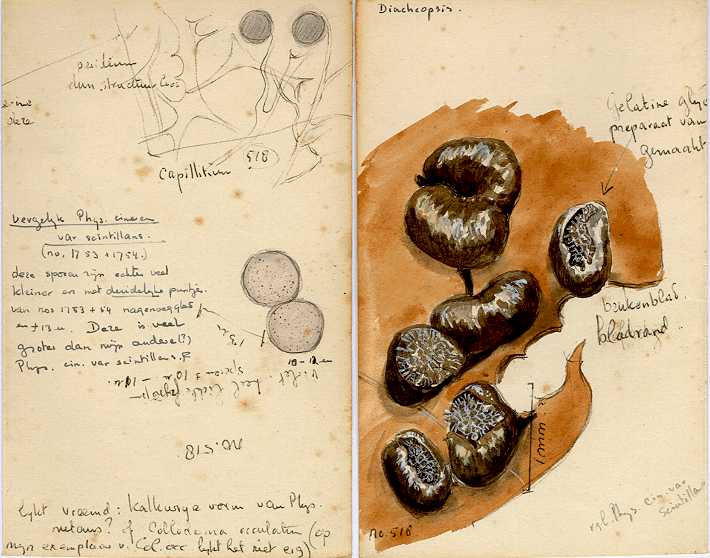 peridium
dun, structuurloos
518
Capillitium
vergelijk Phys. cinereu
var scintillans.
(no. 1753 + 1754.)
deze sporen zijn echter veel
kleiner en met duidelijke puntjes
van nos 1753 + 54 nagenoeg glad
en ± 13 u. Deze is veel
groter dan mijn andere (?)
Phys. cin. var scintillans.
13 u
10 - 12 u
violet heel licht
sporen ± 10 u - 11 u.
no. 518
lijkt vreemd: kalkarge vorm van Phys.
nutans? of Colloderma oculatum (op
mijn exemplaar v. Col. occ lijkt het niet erg)
Diacheopsis.
Gelatine glyc
preparaat van
gemaakt
beukenblad.
bladrand.
1 mm
no. 518
vgl. Phys. cin. var
Scintillans